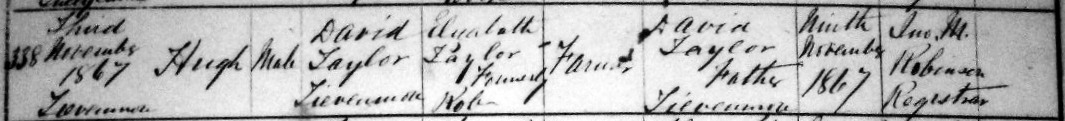 338 Third November 1867 Lievenmore
Hugh
Male
David Taylor Lievenmore
Elizabeth Taylor Formerly Robb
Farmer
David Taylor Father Lievenmore
Ninth November 1867
Jno. M. Robinson Registrar